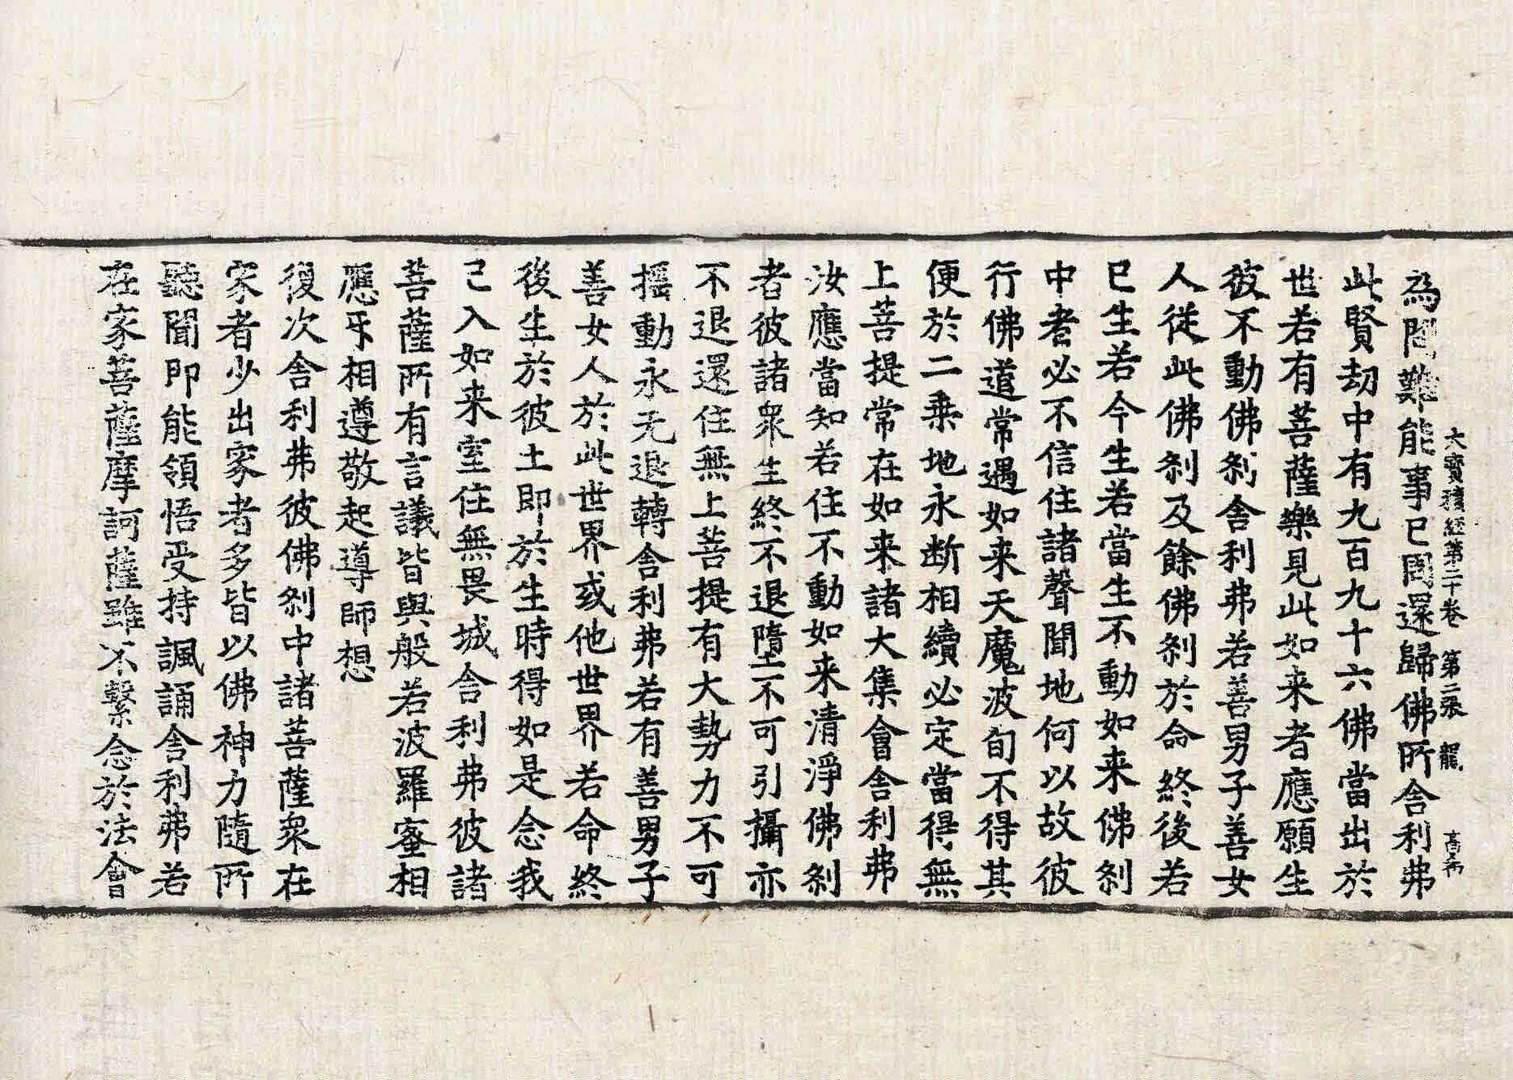 大寳積経第二十卷 第二张 龍
為問難能事已同還歸佛所舎利弗
此賢劫中有九百九十六佛當出於
世若有菩薩樂見此如来者應願生
彼不動佛刹舎利弗若善男子善女
人從此佛刹及餘佛刹於命終後若
已生若今生若當生不動如来佛刹
中者必不信住諸聲聞地何以故彼
行佛道常遇如来天魔波旬不得其
便於二乗地永断相續必定當得無
上菩提常在如来諸大集會舎利弗
汝應當知若住不動如来清淨佛刹
者彼諸衆生終不退墮不可引攝亦
不退還住無上菩提有大勢力不可
揺動永无退轉舎利弗若有善男子
善女人於此世界或他世界若命終
後生於彼土即於生時得如是念我
已入如来室住無畏城舎利弗彼諸
菩薩所有言議皆與般若波羅蜜相
應㸦相遵敬起導師想
復次舎利弗彼佛刹中諸菩薩衆在
家者少出家者多皆以佛神力隨所
聽聞即能領悟受持諷誦舎利弗若
在家菩薩摩訶薩雖不繫念於法會